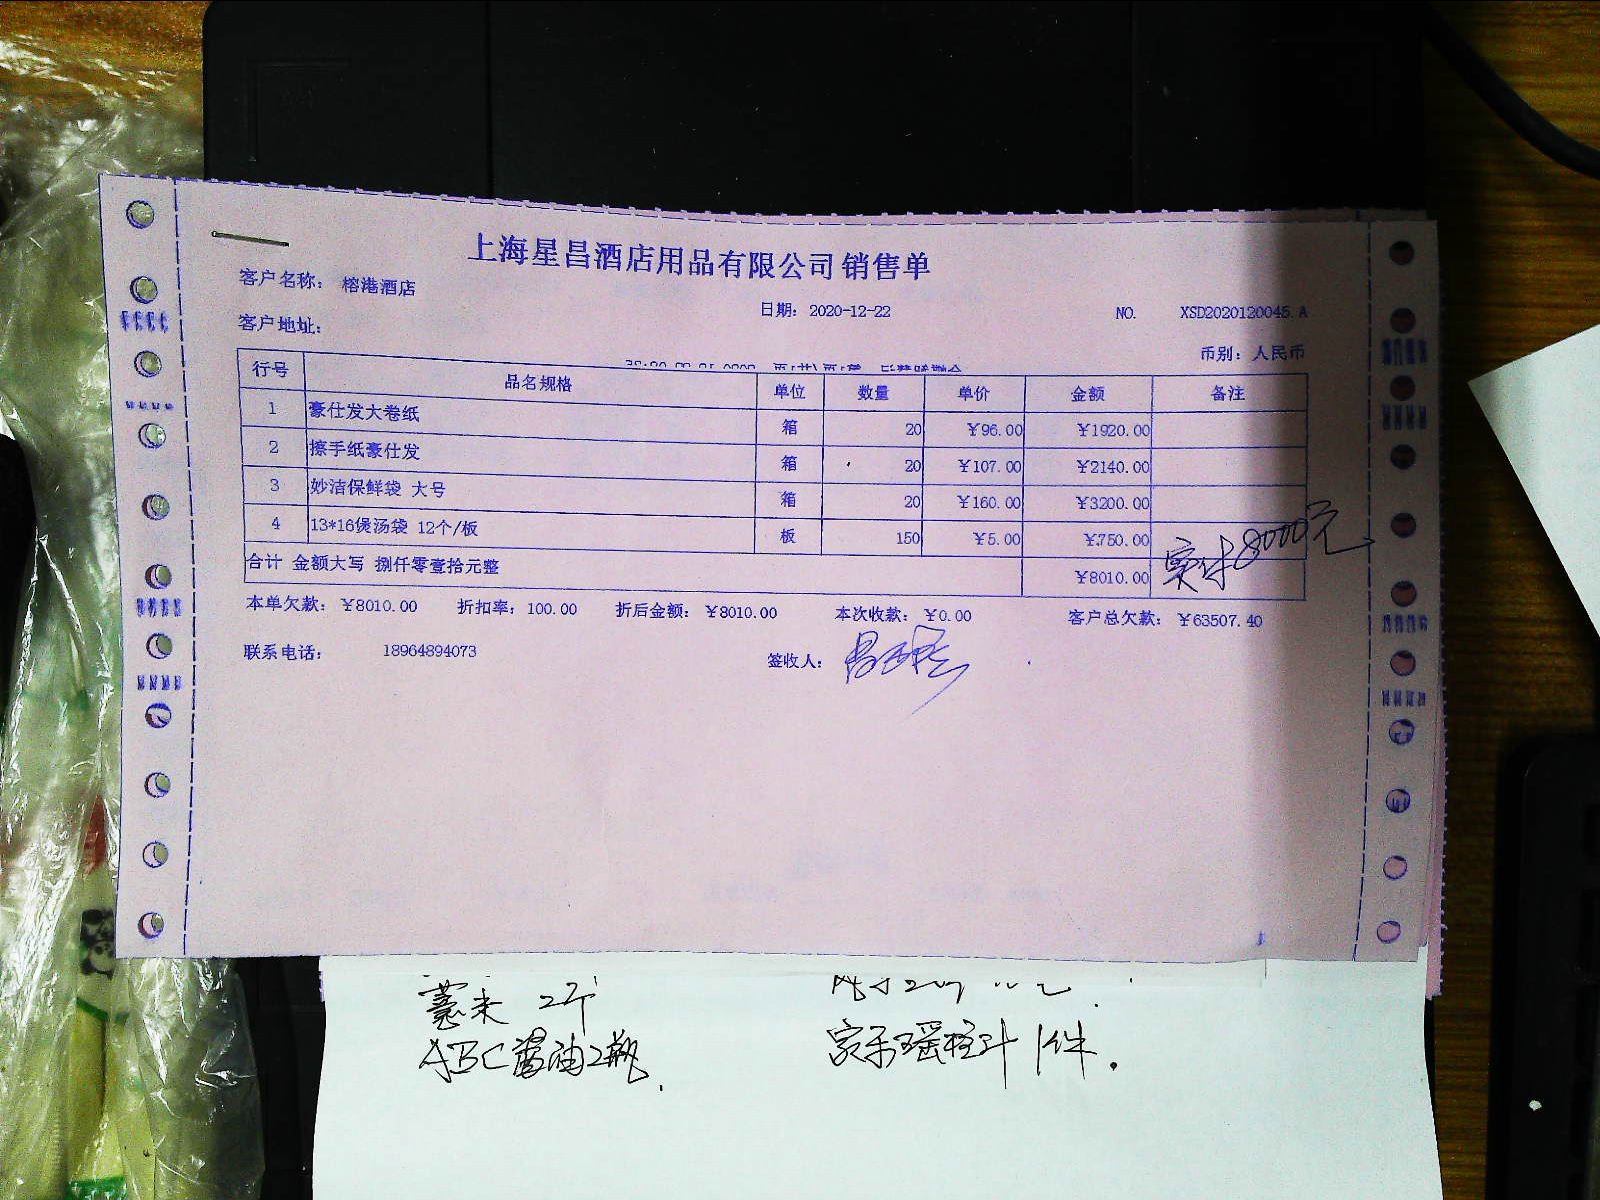 上海星昌酒店用品有限公司销售单
客户名称: 榕港酒店
日期: 2020-12-22 NO. XSD2020120045.A
客户地址:
币别: 人民币
行号 品名规格 单位 数量 单价 金额 备注
1 豪仕发大卷纸 箱 20 ¥96.00 ¥1920.00
2 擦手纸豪仕发 箱 20 ¥107.00 ¥2140.00
3 妙洁保鲜袋 大号 箱 20 ¥160.00 ¥3200.00
4 13*16煲汤袋 12个/板 板 150 ¥5.00 ¥750.00
合计 金额大写 捌仟零壹拾元整 ¥8010.00 实付8000元
本单欠款: ¥8010.00 折扣率: 100.00 折后金额: ¥8010.00 本次收款: ¥0.00 客户总欠款: ¥63507.40
联系电话: 18964894073 签收人:
薏米 2斤
ABC酱油2瓶.
家乐瑶柱汁1件.